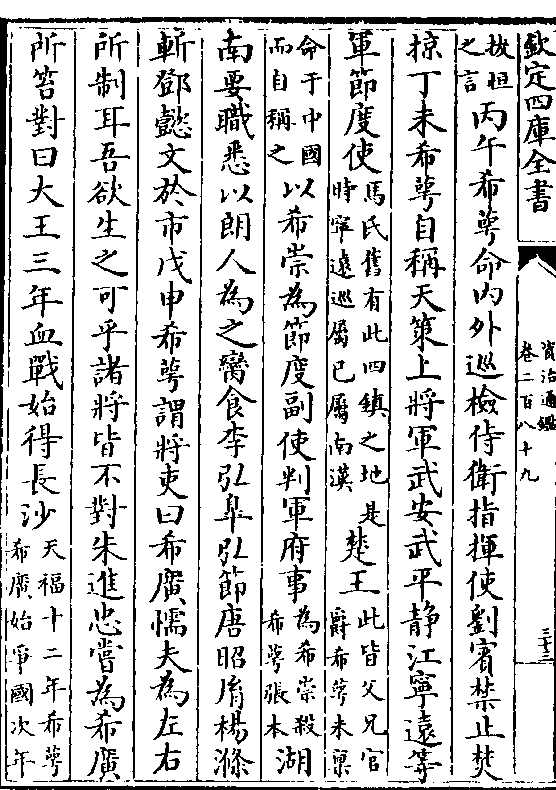 欽定四庫全書
資治通鑑
卷二百八十九
三十三
拔恒之言丙午希萼命内外巡檢侍衛指揮使劉賓禁止焚
掠丁未希萼自稱天策上將軍武安武平静江寧遠等
軍節度使馬氏舊有此四鎮之地是時寧遠巡屬已屬南漢楚王此皆父兄官爵希萼未禀
命于中國而自稱之以希崇為節度副使判軍府事為希崇殺希萼張本湖
南要職悉以朗人為之臠食李弘臯弘節唐昭胤楊滌
斬鄧懿文於市戊申希萼謂將吏曰希廣懦夫為左右
所制耳吾欲生之可乎諸將皆不對朱進忠嘗為希廣
所笞對曰大王三年血戰始得長沙天福十二年希萼希廣始爭國次年